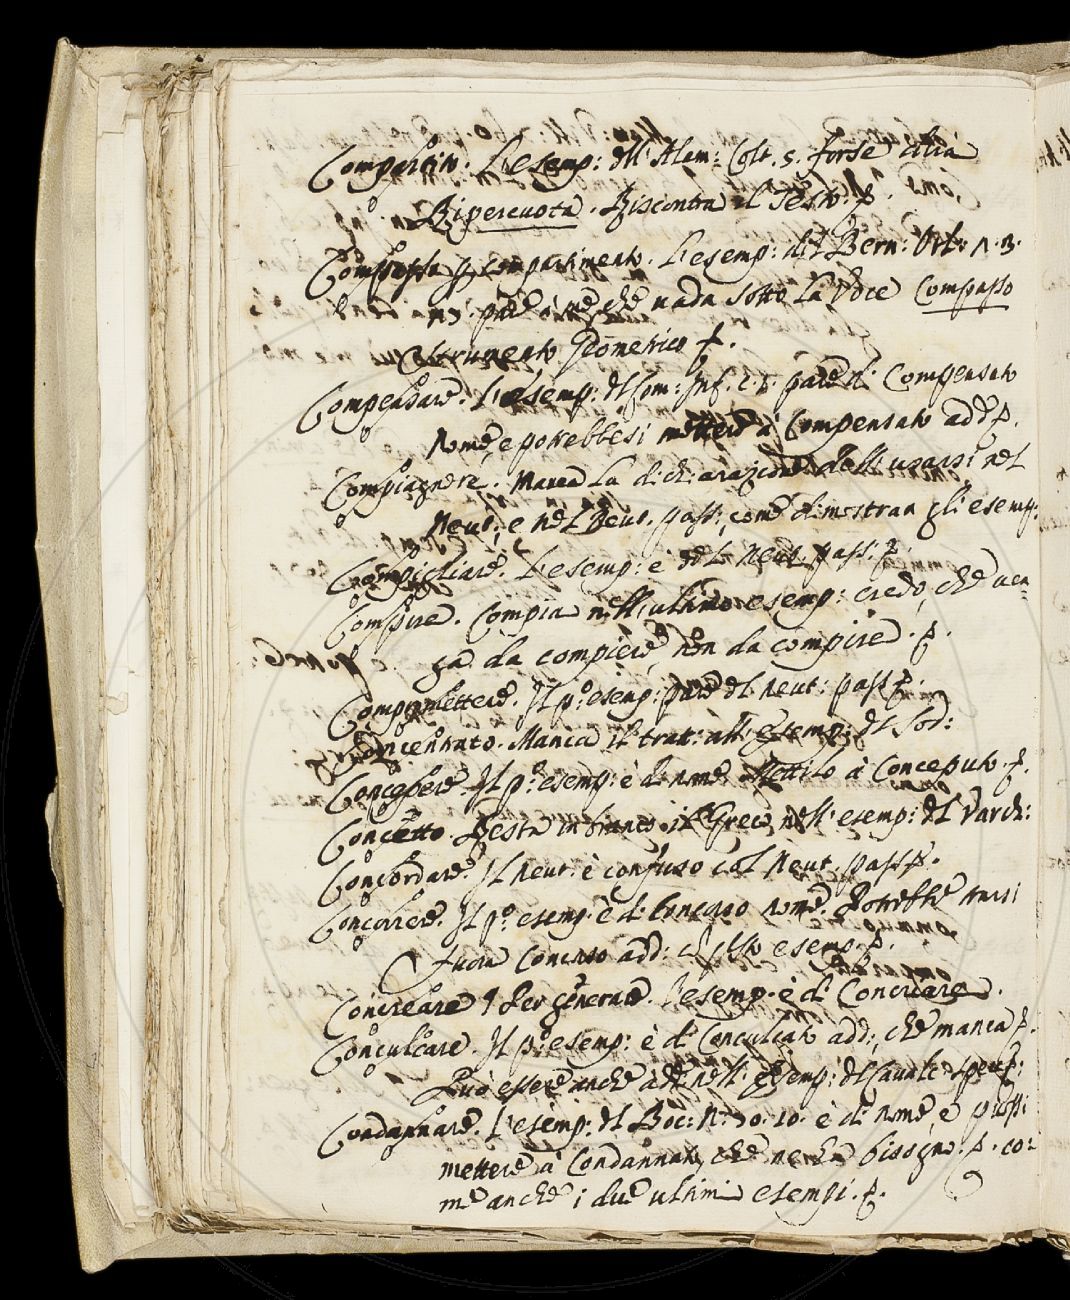 Compartire. L'esemp: dell'Alam: Colt. 5. forse ch'ha
Ripercuota. Riscontra il Testo. f.
Compasso p compartimento. L'esemp: del Bern: Orl: 1. 3.
nō par à me che vada sotto la voce Compasso
strumento geometrico f.
Compensare. L'esemp: del com: Inf. c. 7. pare di Compensato
Nome, e potrebbesi mettere à Compensato add. f.
Compiagnere. Manca la dichiarazione dell'usarsi nel
Neut; e nel Neut. pass: come dimostran gli esemp:
Compigliare. L'esemp: è del Neut. pass: f.
Compire. Compia nell'ultimo esemp: credo, che ven=
ga da compiere, non da compire. f.
Compromettere. Il p.º esemp: pare del neut: pass f.
Concennato. Manca il tratt: all'esemp: del Sod:
Concepere. Il p.º esemp: è di nome. Mettilo à Conceputo. f.
Concetto. Resta in bianco il Greco, nell'esemp: del Varch:
Concordare. Il neut: è confuso col Neut. pass f.
Concorrere. Il p.º esemp: è di Concorso nome. Potrebbe trarsi
fuora Concorso add: esemp. f.
Concreare p Per generare. L'esemp. è di Concriare.
Conculcare. Il p.º esemp: è di Conculcato add:, che manca f.
Può essere anche add. nell'esemp: del Cavalc. specch:
Condannare. L'esemp: del Boc: N: 30. 10. è di nome, e puossi
mettere à Condannato, che ne ha bisogno. f. co=
me anche i due ultimi esempi. f.